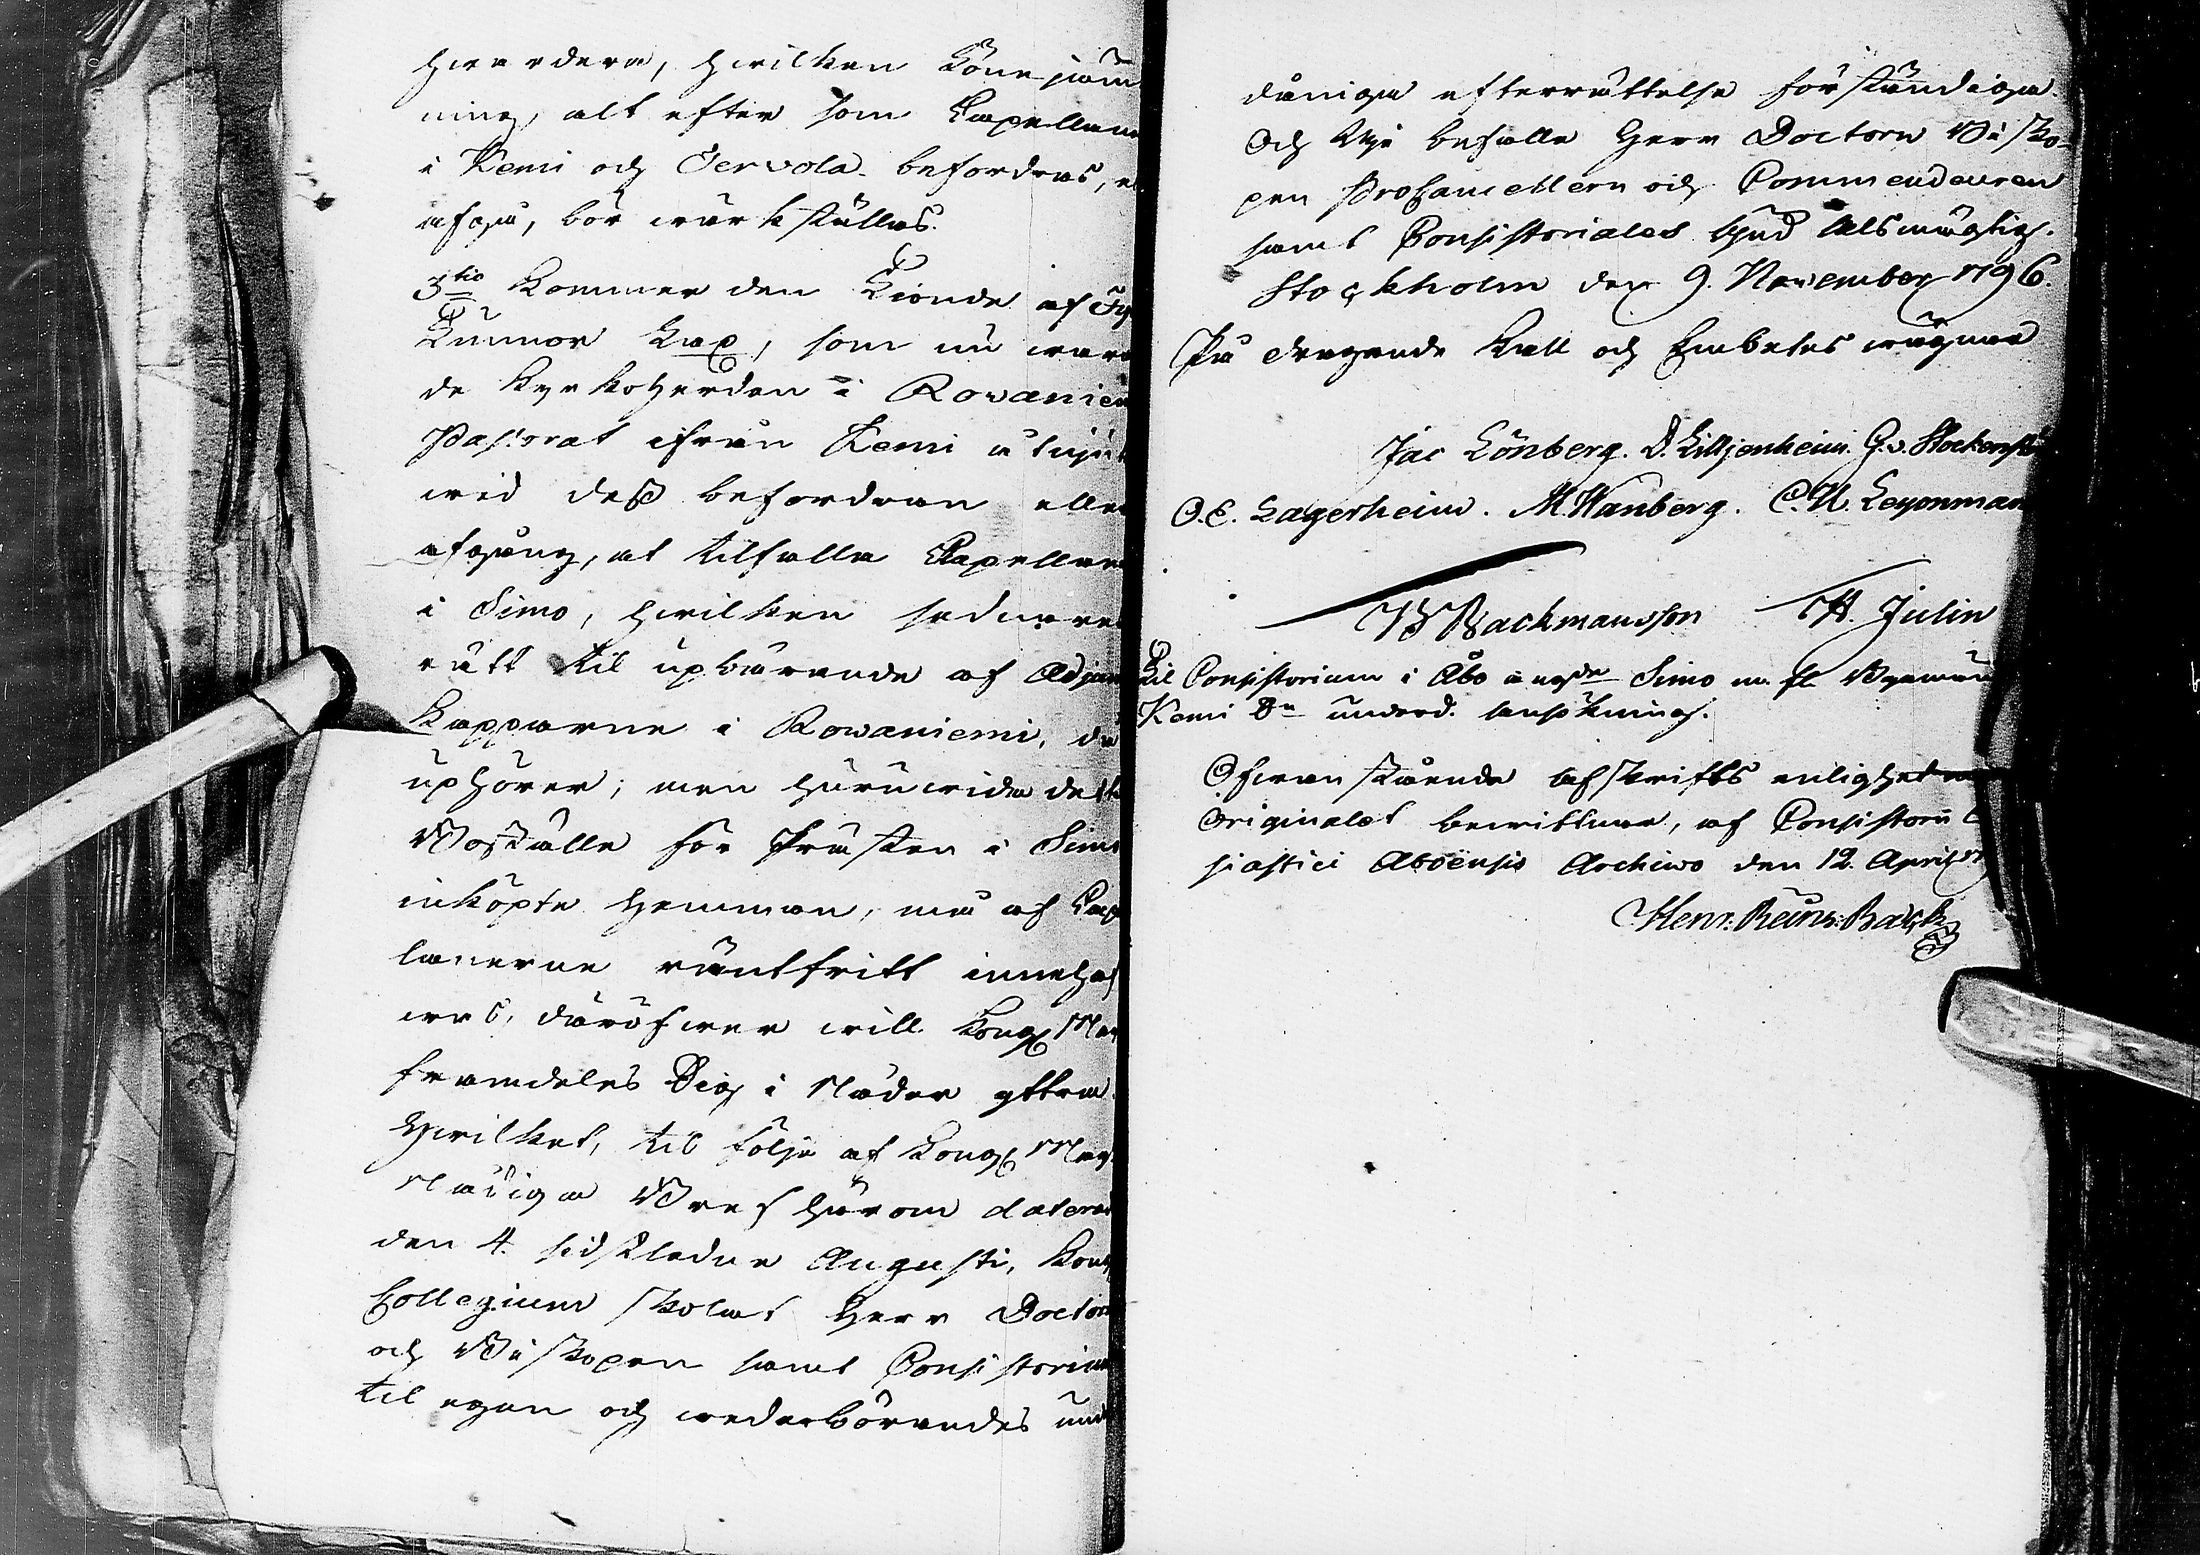 hwardera, hwilken Lönejäm
ning, alt efter som Capellane
i Kemi och Tervola befordras, el
afgå, bör wärkställas.
3tio Kommer den Tionde af
Tunnor Kap, som nu wara
de Kyrkoherden i Rovaniem
Pastorat ifrån Kemi åtnjut
wid dess befordran eller
afgång, at tilfalla Capellane
i Simo, hwilken sednare
rätt til upbärande af Adjun
Kapparne i Rowaniemi, då
uphörer; men huruwida dett
Boställe för Prästen i Simo
inköpte Hemman, må af Cap
lanerne räntfritt innehaf
was, däröfwer will Kongl. May
framdeles Sig i Nåder yttra.
Hwilket, til följe af Kongl. May
Nådiga Bref härom daterat
den 4. sidstledne Augusti, Kong
Collegium skolat Herr Doctorn
och Biskopen samt Consistorium
til egen och wederbörandes und
dåniga efterrättelse förständiga.
Och Wi befalle Herr Doctorn Bisko-
pen Procancellern och Commendeuren
samt Consistoriales Gud Alsmägtig.
Stockholm den 9. November 1796.
På dragande Kall och Embetes wägnar
Jac Lönberg. D. Lilljenheim. G. v. Stockenst
O. E. Lagerheim. M. Wanberg. C. U. Leyonmar
B Backmansson A. Julin
Til Consistorium i Åbo angde Simo m. fl. Byamän
Kemi Sn underd. ansökning.
Ofwanstående Afskrifts enlighet med
Originalet bewittnar, af Consistorii E
siastici Aboënsis Archivo den 12. April 17
Henr. Reinh. Back